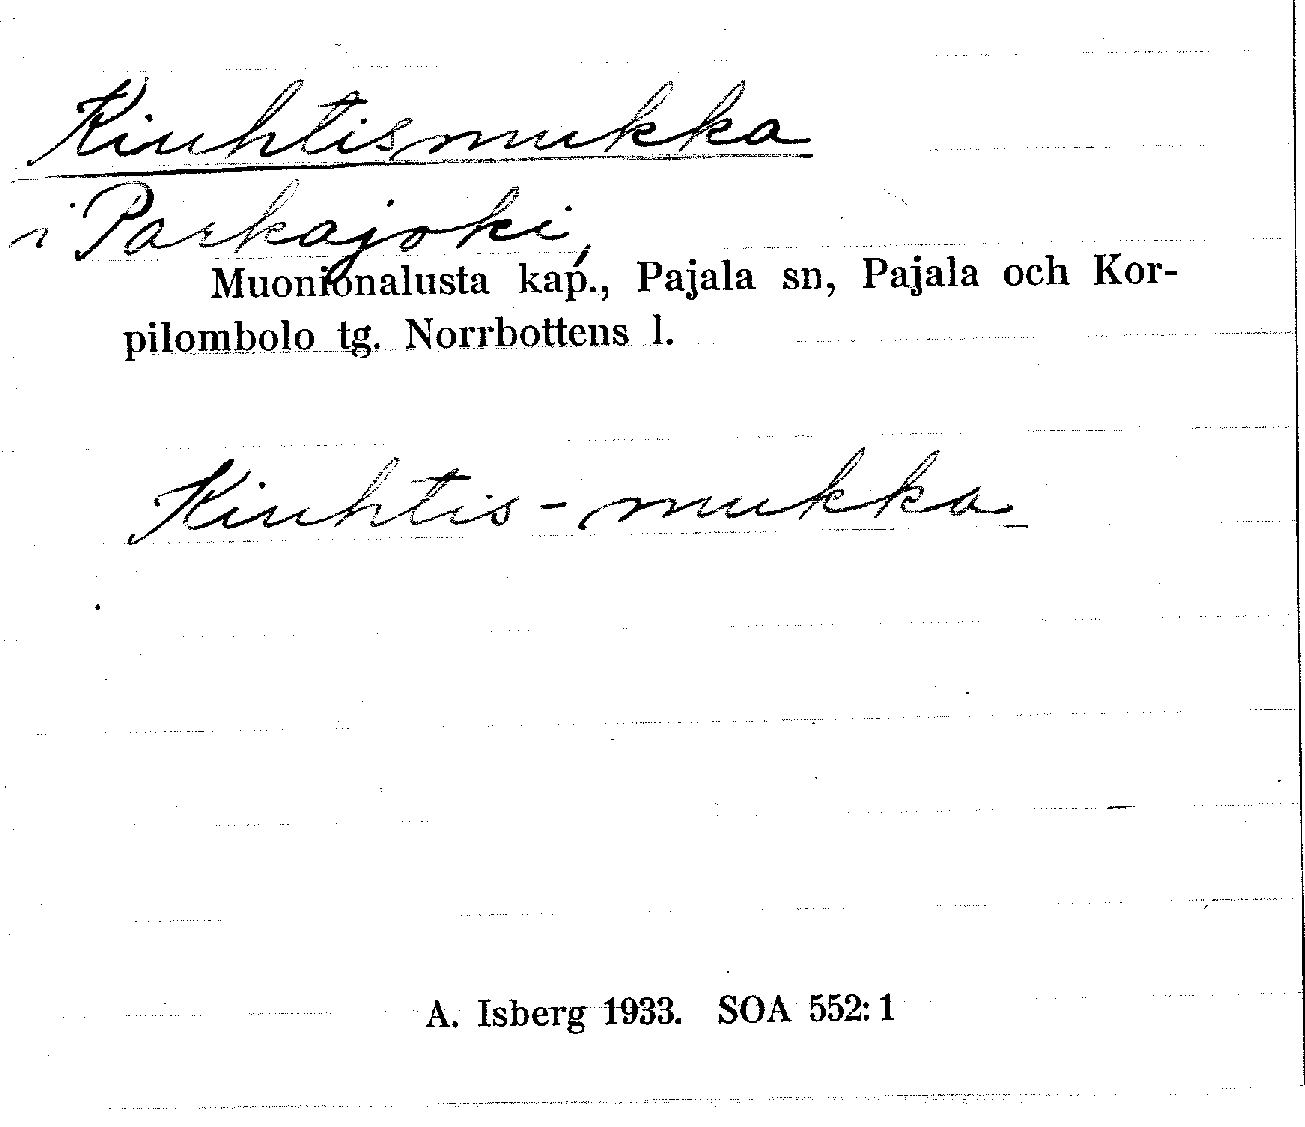 Kiuhtismukka
i Parkajoki,
Muonionalusta kap., Pajala sn, Pajala och Kor-
pilombolo tg. Norrbottens l.
Kiuhtis-mukka
A. Isberg 1933. SOA 552: 1